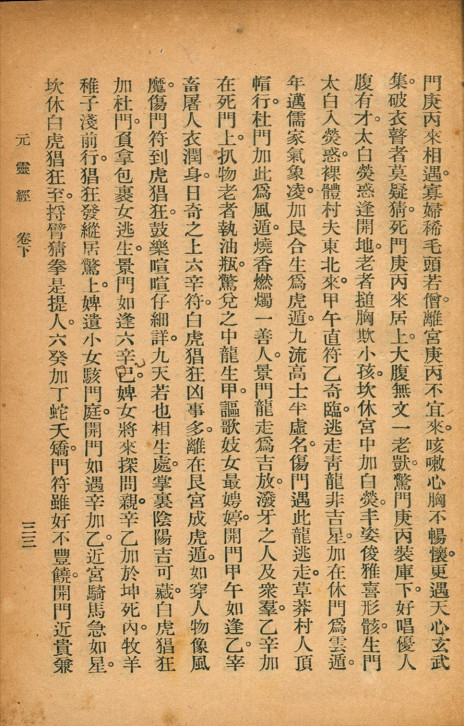 門庚丙來相遇。寡婦稀毛頭若僧。離宮庚丙不宜來。咳嗽心胸不暢懷。更遇天心玄武
集。破衣瞽者莫疑猜。死門庚丙來居上。大腹無文一老獃。驚門庚丙裝庫下。好唱優人
腹有才。太白熒惑逢開地。老者搥胸欺小孩。坎休宮中加白熒。丰姿俊雅喜形骸。生門
太白入熒惑。裸體村夫東北來。甲午直符乙奇臨。逃走靑龍非吉星。加在休門爲雲遁。
年邁儒家氣象凌。加艮合生爲虎遁。九流高士半虛名。傷門遇此龍逃走。草莽村人頂
帽行。杜門加此爲風遁。燒香燃燭一善人。景門龍走爲吉放。潑牙之人及衆羣。乙辛加
在死門上。扒物老者執油瓶。驚兌之中龍生甲。謳歌妓女最娉婷。開門甲午如逢乙。宰
畜屠人衣潤身。日奇之上六辛符。白虎猖狂凶事多。離在艮宮成虎遁。如穿人物像風
魔。傷門符到虎猖狂。鼓樂喧喧仔細詳。九天若也相生處。掌裏陰陽吉可藏。白虎猖狂
加杜門。負拿包裹女逃生。景門如逢六辛己。婢女將來探問親。辛乙加於坤死內。牧羊
稚子淺前行。猖狂發縱居驚上。婢遣小女駭門庭。開門如遇辛加乙。近宮騎馬急如星。
坎休白虎猖狂至。捋臂猜拳是提人。六癸加丁蛇夭矯。門符雖好不豐饒。開門近貴兼
元靈經 卷下
三三